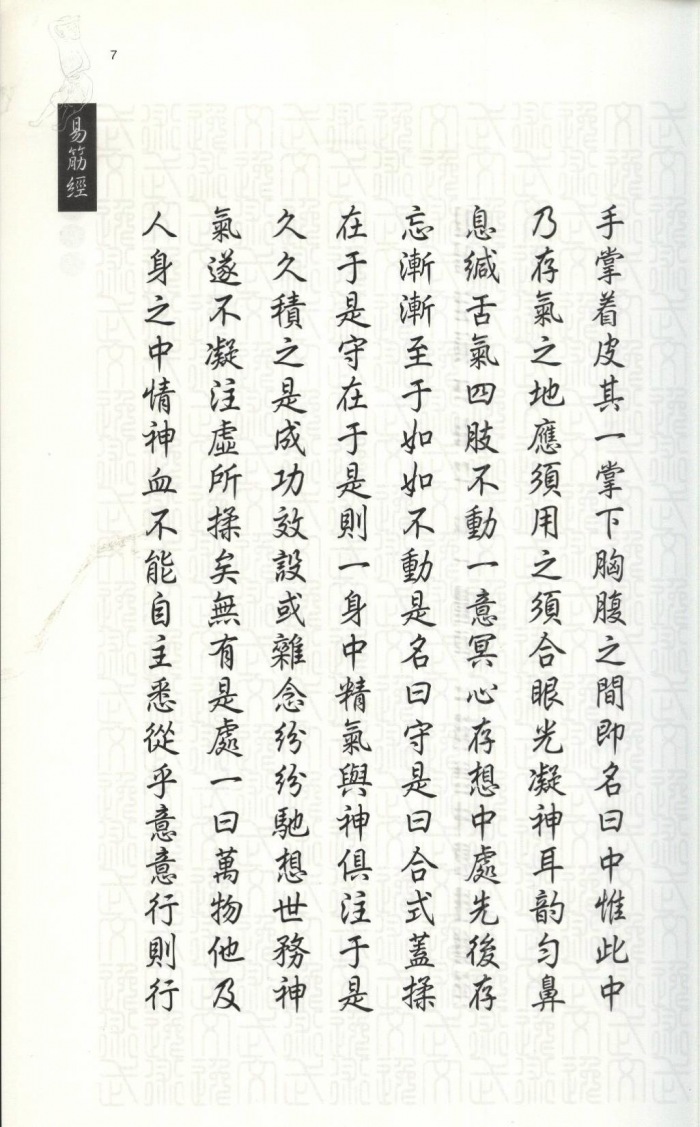 7
易筋經
手掌着皮其一掌下胸腹之間即名曰中惟此中
乃存氣之地應須用之須合眼光凝神耳韵勻鼻
息緘舌氣四肢不動一意冥心存想中處先後存
忘漸漸至于如如不動是名曰守是曰合式蓋揉
在于是守在于是則一身中精氣與神俱注于是
久久積之是成功效設或雜念紛紛馳想世務神
氣遂不凝注虛所揉矣無有是處一曰萬物他及
人身之中情神血不能自主悉從乎意意行則行